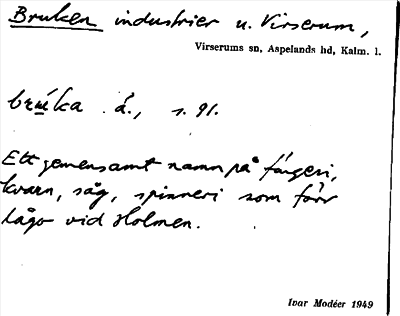 Bruken industrier u. Virserum,
Virserums sn, Aspelands hd, Kalm. l.
brúka .á., s. 91.
Ett gemensamt namn på färgeri,
kvarn, såg, spinneri som förr
lågo vid Holmen.
Ivar Modéer 1949